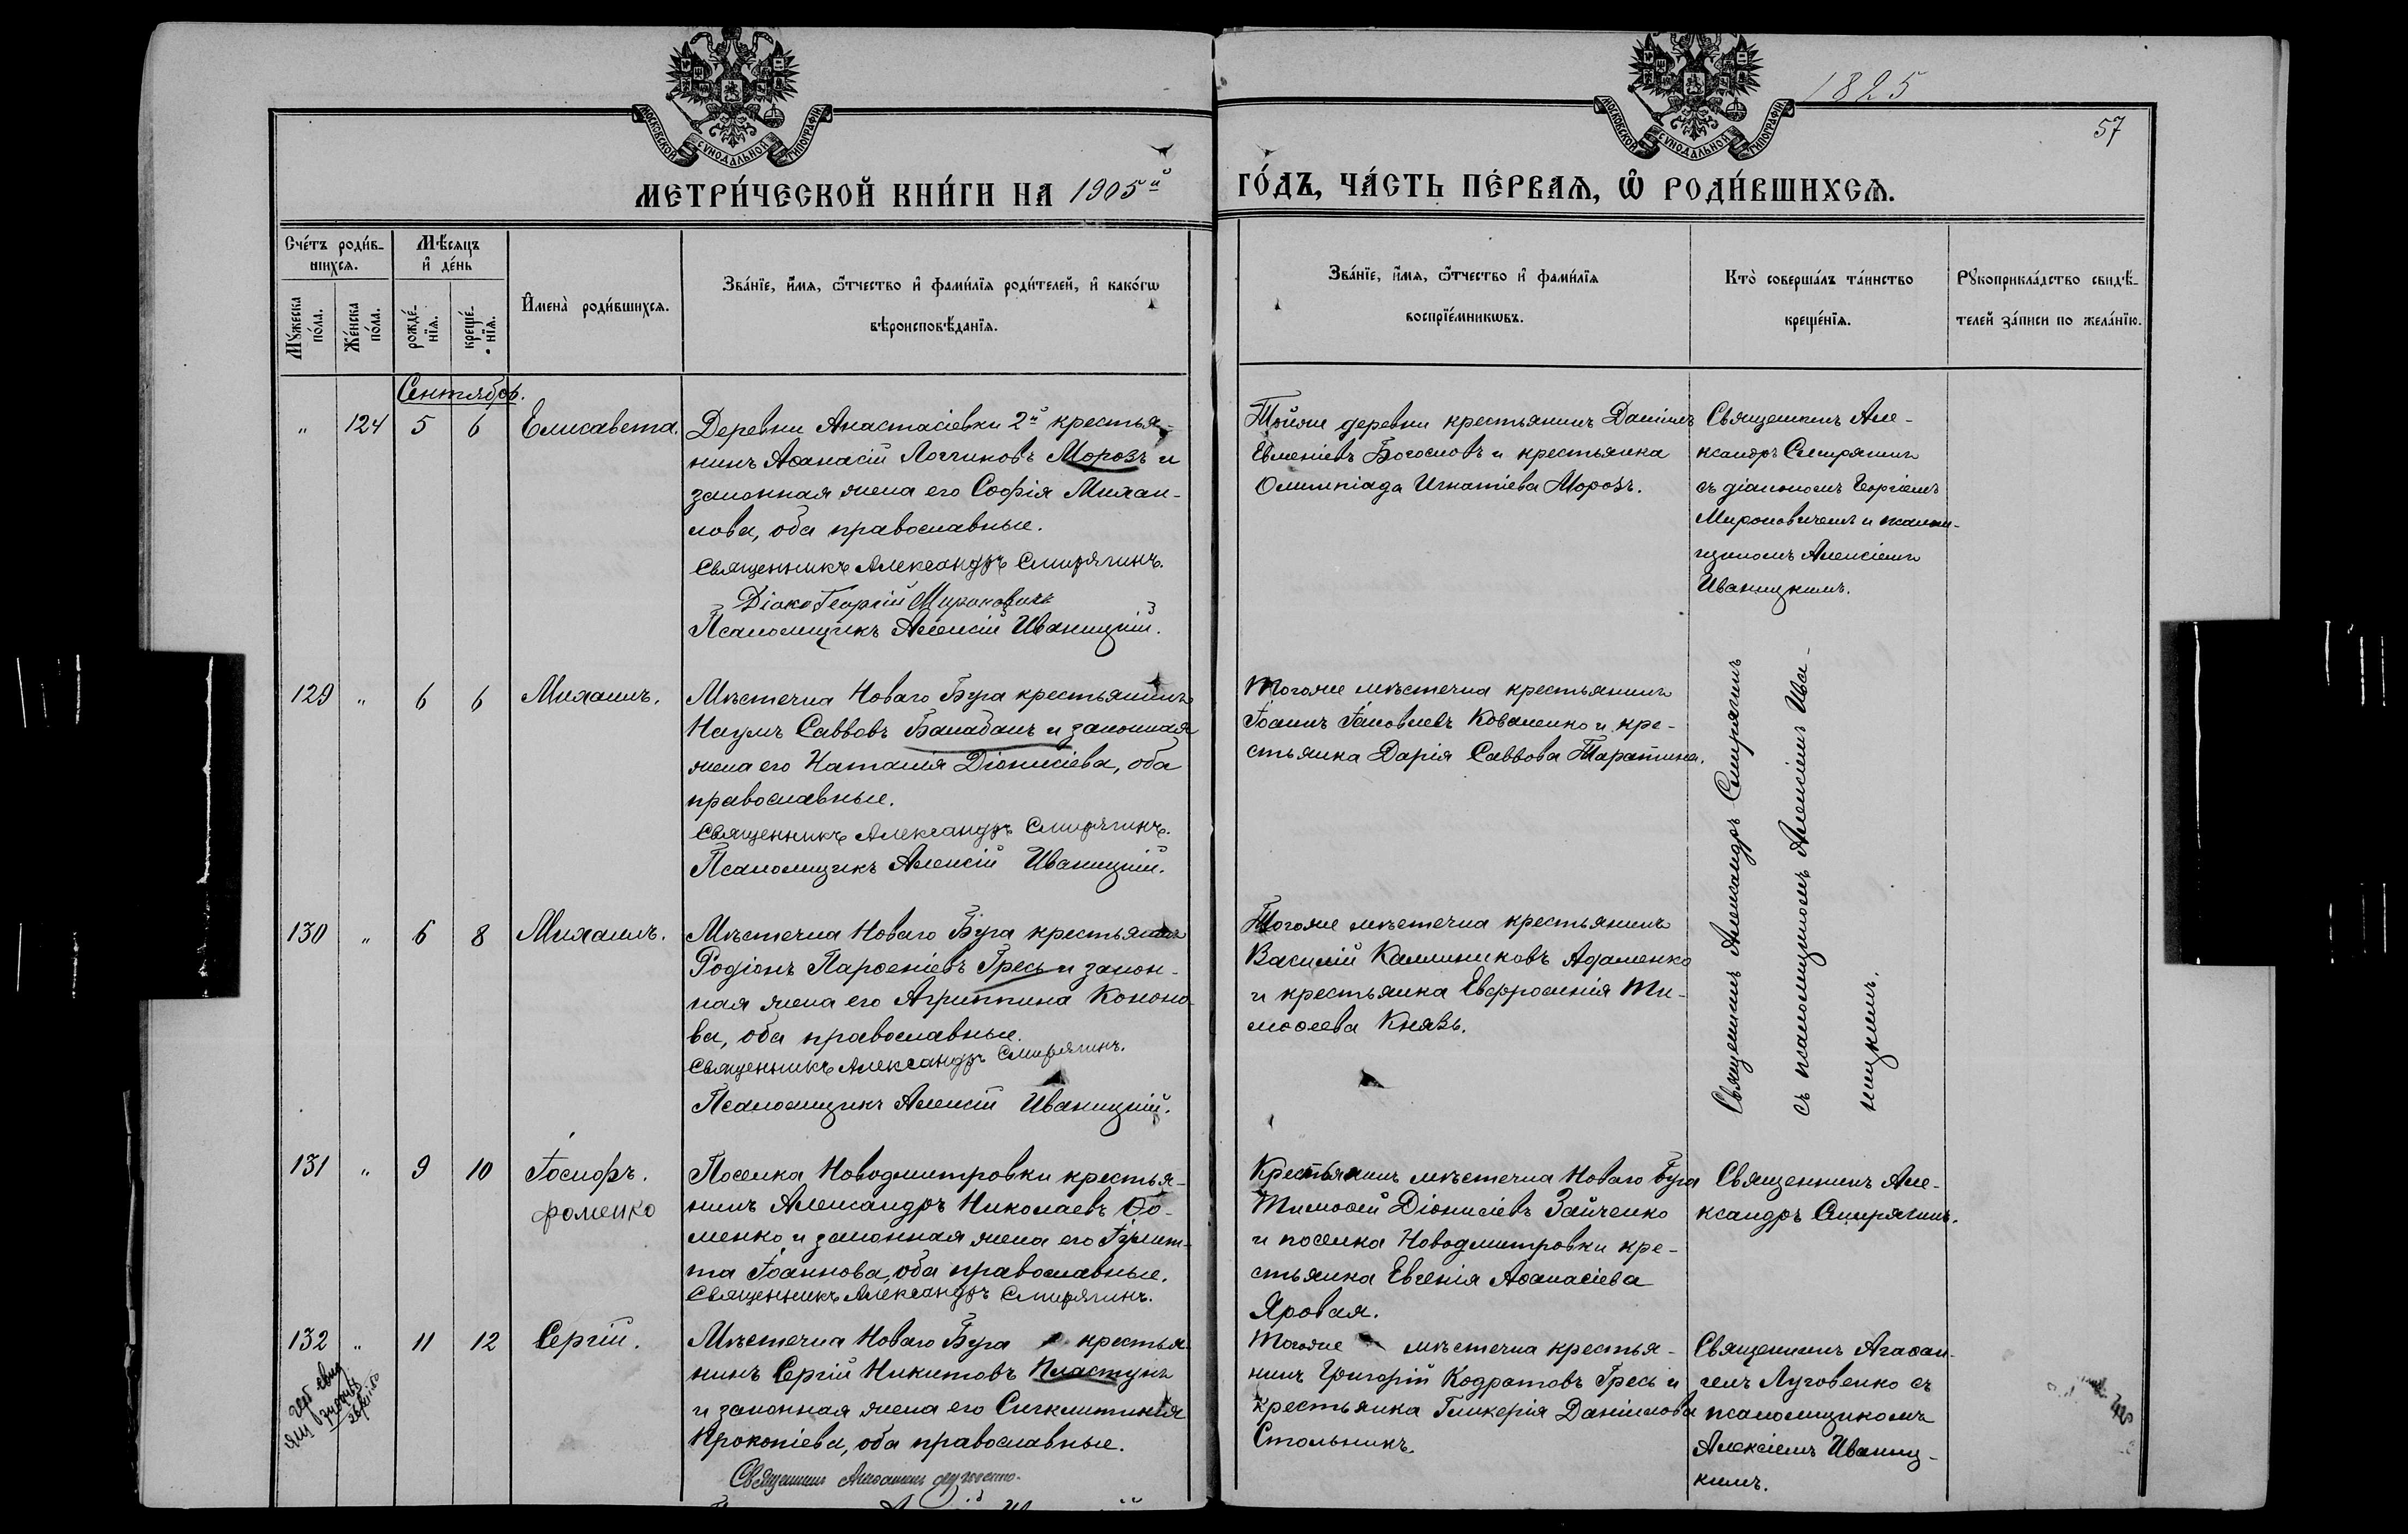 МОСКОВСКОЙ СѴНОДАЛЬНОЙ ТИПОГРАФІИ
МОСКОВСКОЙ СѴНОДАЛЬНОЙ ТИПОГРАФІИ
1825
57
МЕТРИ́ЧЕСКОЙ КНИ́ГИ НА 1905й
ГО́ДЪ, ЧА́СТЬ ПЕ́РВАѦ, Ѿ РОДИ́ВШИХСѦ.
Сче́тъ роди́в-
шихсѧ.
Мꙋ́жеска по́ла.
Же́нска по́ла.
Мѣ́сѧцъ
и҆ де́нь
рожде́-
нїѧ.
креще́-
нїѧ.
И҆мена̀ роди́вшихсѧ.
Зва́нїе, и҆́мѧ, ѻ҆́тчество и҆ фами́лїѧ роди́телей, и҆ како́гѡ
вѣроисповѣ́данїѧ.
Зва́нїе, и҆́мѧ, ѻ҆́тчество и҆ фами́лїѧ
воспрїе́мникѡвъ.
Кто̀ соверша́лъ та́инство
креще́нїѧ.
Рꙋкоприкла́дство свидѣ́-
телей за́писи по жела́нїю.
Сентябрь.
" 124 5 6 Елисавета.
Деревни Анастасіевки 2й крестья-
нинъ Аѳанасій Логгиновъ Морозъ и
законная жена его Софія Михаи-
лова, оба православные.
Священникъ Александръ Смирягинъ.
Діако Георгій Мироновичъ
Псаломщикъ Алексій Иваницкій.
Тойже деревни крестьянинъ Даніилъ
Евменіевъ Богословъ и крестьянка
Олимпіада Игнатіева Морозъ.
Священникъ Але-
ксандръ Смирягинъ
съ діакономъ Георгіемъ
Мироновичемъ и псалом-
щикомъ Алексіемъ
Иваницкимъ.
129 " 6 6 Михаилъ.
Мѣстечка Новаго Буга крестьянинъ
Наумъ Саввовъ Балабанъ и законная
жена его Наталія Діонисіева, оба
православные.
Священникъ Александръ Смирягинъ.
Псаломщикъ Алексій Иваницкій.
Тогоже мѣстечка крестьянинъ
Іоаннъ Іаковлевъ Коваленко и кре-
стьянка Дарія Саввова Таратина.
Священникъ Александръ Смирягинъ
съ псаломщикомъ Алексіемъ Ива-
ницкимъ.
130 " 6 8 Михаилъ.
Мѣстечка Новаго Буга крестьянинъ
Родіонъ Парѳеніевъ Гресь и закон-
ная жена его Агриппина Конно-
ва, оба православные.
Священникъ Александръ Смирягинъ.
Псаломщикъ Алексій Иваницкій.
Тогоже мѣстечка крестьянинъ
Василій Каллиниковъ Адаменко
и крестьянка Евфросинія Ти-
моѳеева Князь.
131 " 9 10 Іосифъ.
фоменко
Поселка Новодмитровки крестья-
нинъ Александръ Николаевъ Ѳо-
менко и законная жена его Іулит-
та Іоаннова, оба православные.
Священникъ Александръ Смирягинъ.
Крестьянинъ мѣстечка Новаго Буга
Тимоѳей Діонисіевъ Зайченко
и поселка Новодмитровки кре-
стьянка Евгенія Аѳанасіева
Яровая.
Священникъ Але-
ксандръ Смирягинъ.
132 " 11 12 Сергій.
Мѣстечка Новаго Буга крестья-
нинъ Сергій Никитовъ Пластунъ
и законная жена его Сигклитикія
Прокопіева, оба православные.
Священникъ Агаѳангелъ Луговенко.
Тогоже мѣстечка крестья-
нинъ Григорій Кодратовъ Гресь и
крестьянка Гликерія Даніилова
Стольникъ.
Священникъ Агаѳан-
гелъ Луговенко съ
псаломщикомъ
Алексіемъ Иваниц-
кимъ.